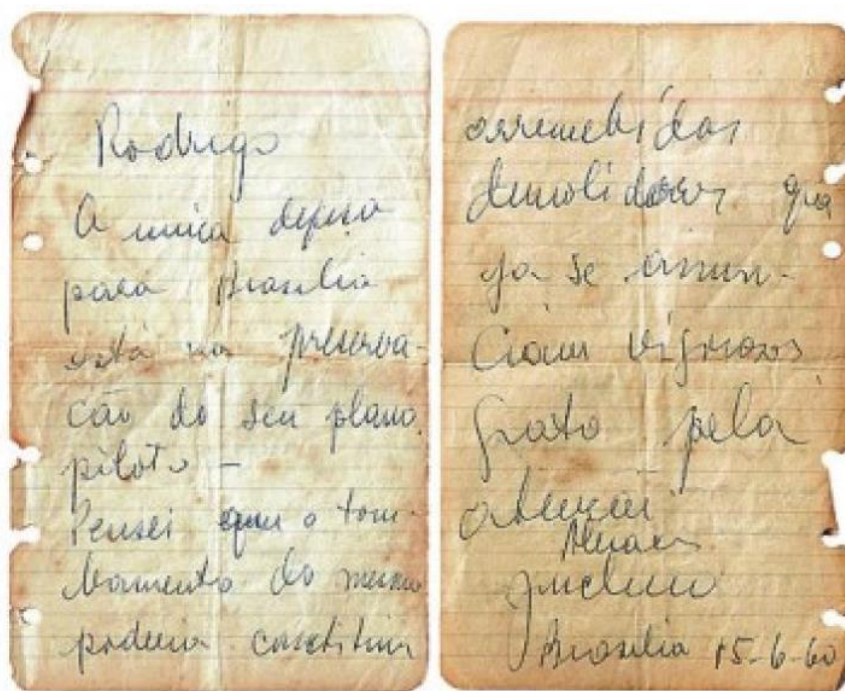 Rodrigo
A unica defesa
para Brasilia
está na preserva-
cão do seu plano
piloto -
Pensei que o tom-
bamento do mesmo
poderia constituir
arremetidas
demolidoras que
ja se anun-
ciam vigorosas
Grato pela
atenção
Abraços
Juscelino
Brasilia 15-6-60